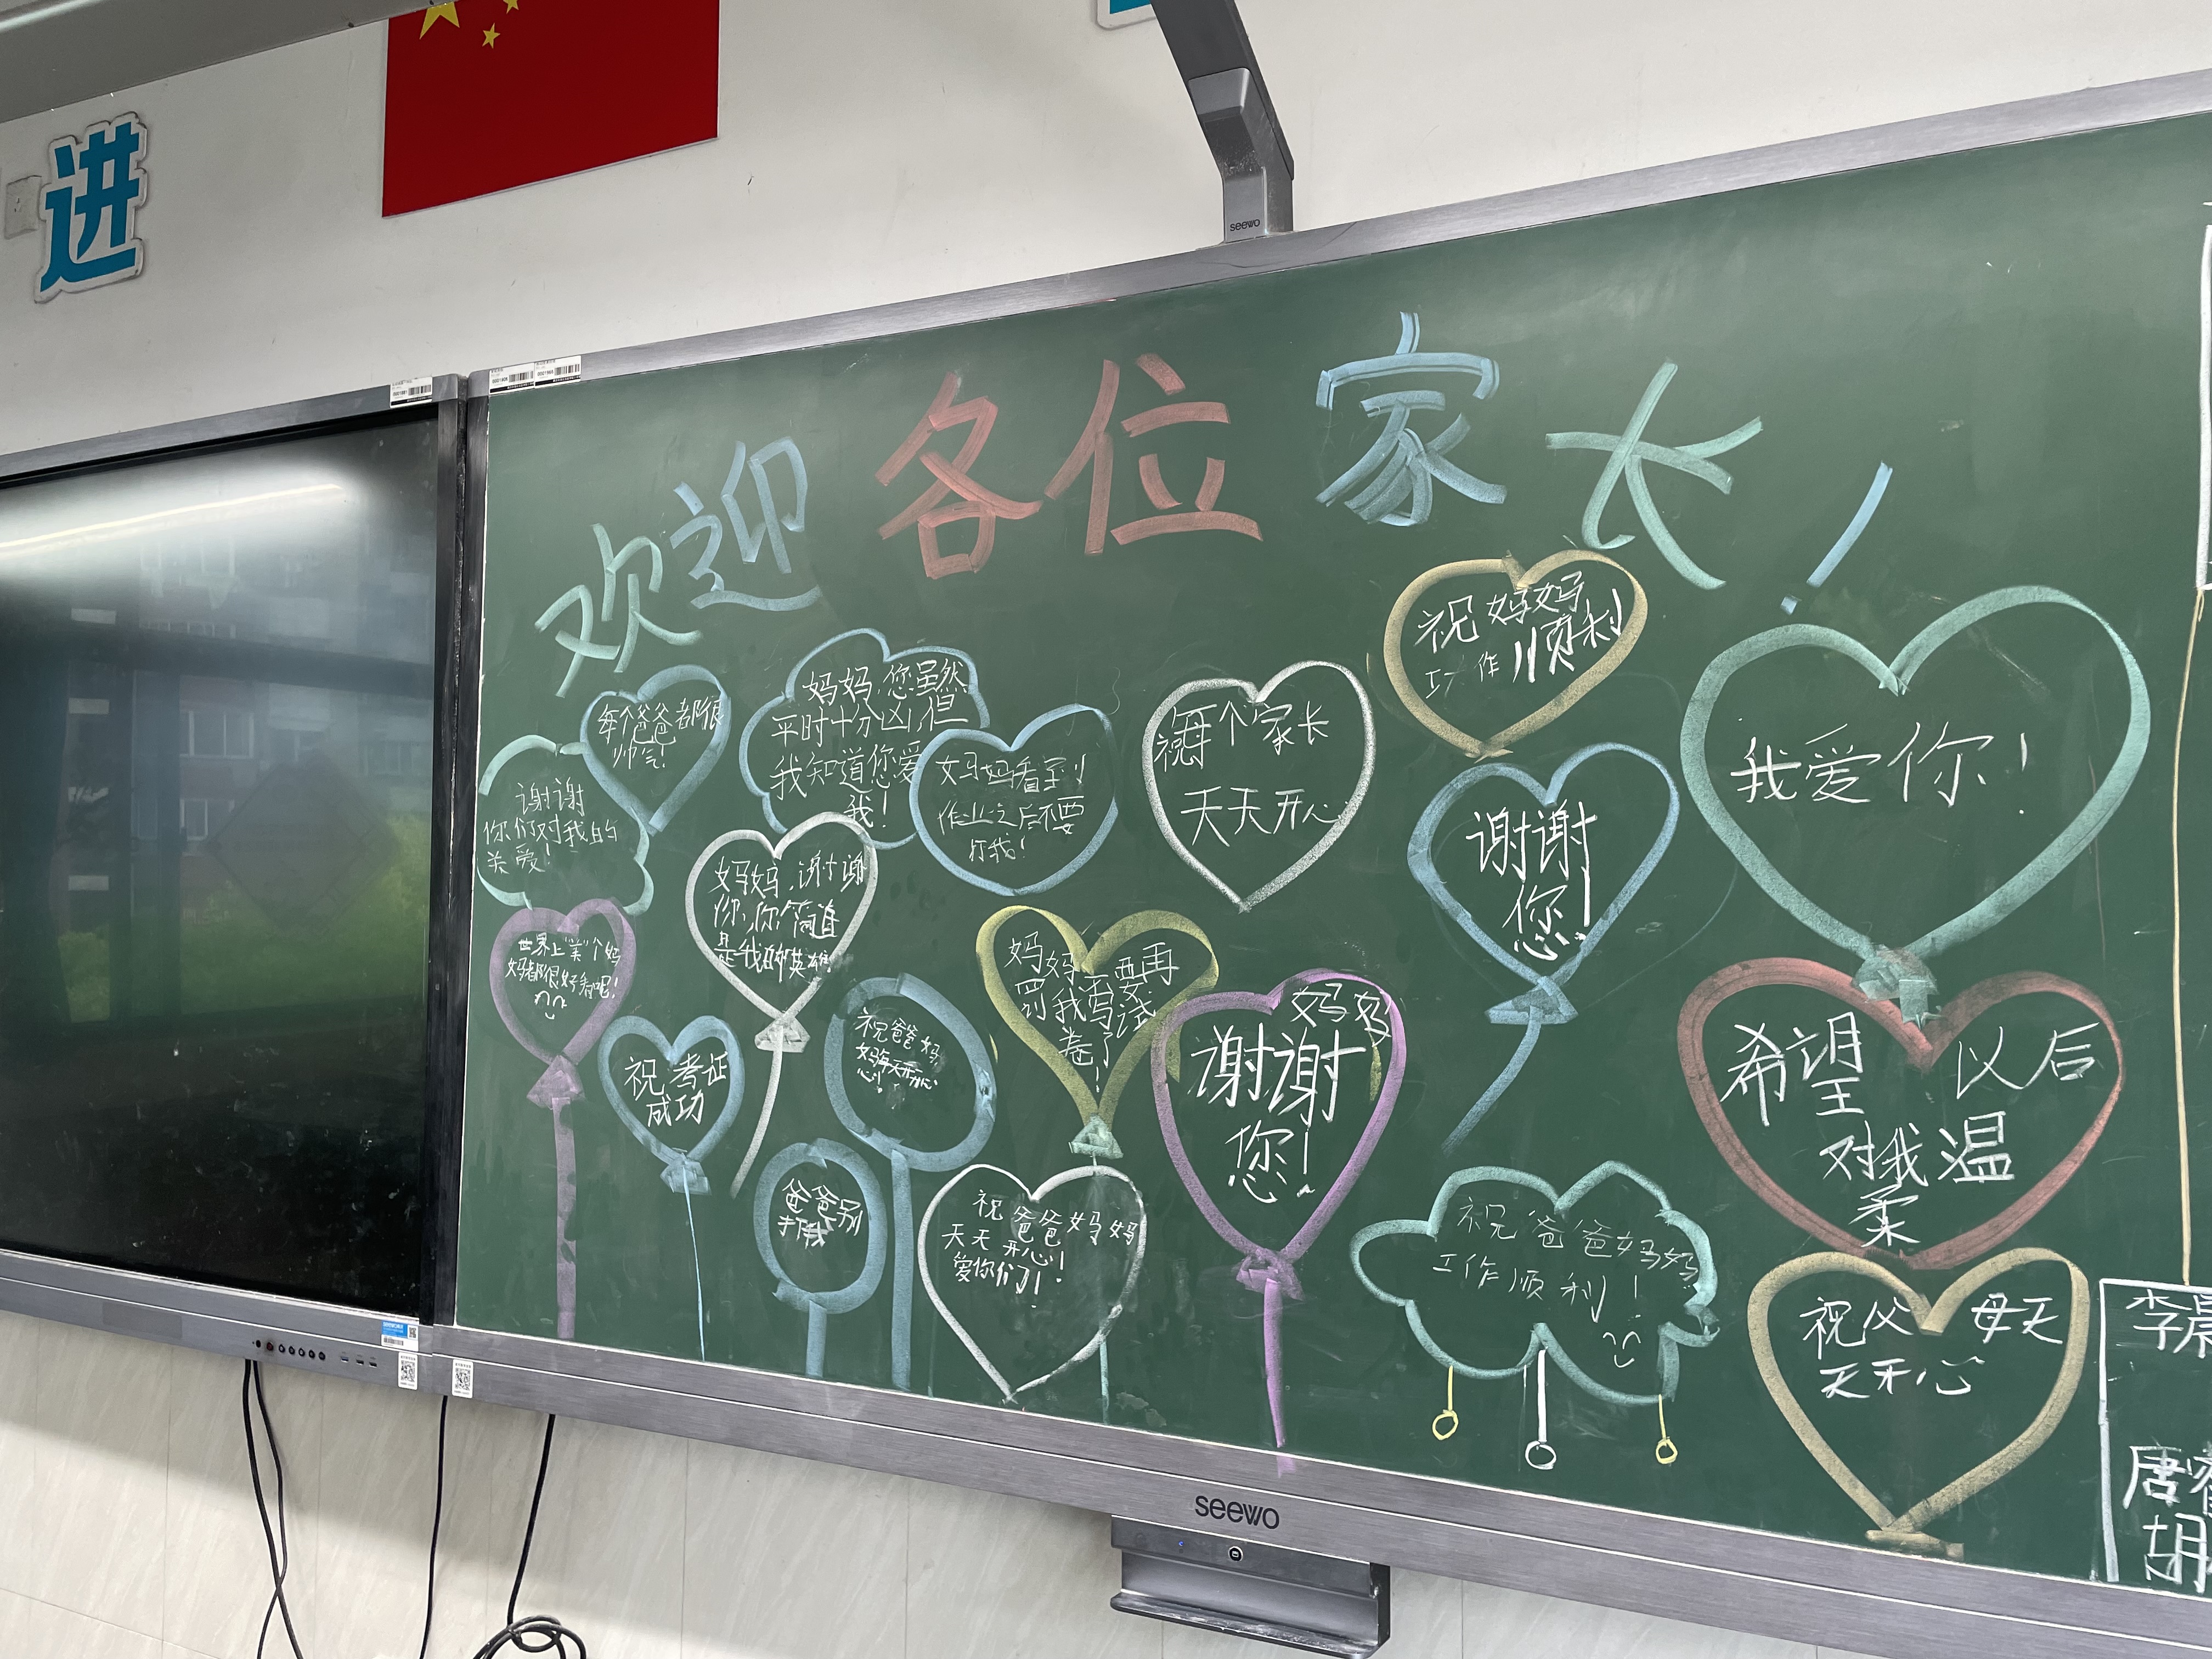 进
seewo
欢迎各位家长!
每个爸爸都很
帅气!
妈妈,您虽然
平时十分凶,但
我知道您爱
我!
谢谢
你们对我的
关爱!
妈妈看到
作业之后不要
打我!
每个家长
天天开心
祝妈妈
工作顺利
我爱你!
谢谢
您!
妈妈,谢谢
你,你简直
是我的英雄
世界上“美”个妈
妈都很好看呢!
祝考证
成功
祝爸爸妈
妈每天开心
心!
妈妈不要再
罚我写试
卷了!
妈妈
谢谢
您!
希望以后
对我温
柔
爸爸别
打我
祝爸爸妈妈
天天开心!
爱你们!
祝爸爸妈妈
工作顺利!
祝父母天
天开心
李晨
唐睿
胡
seewo